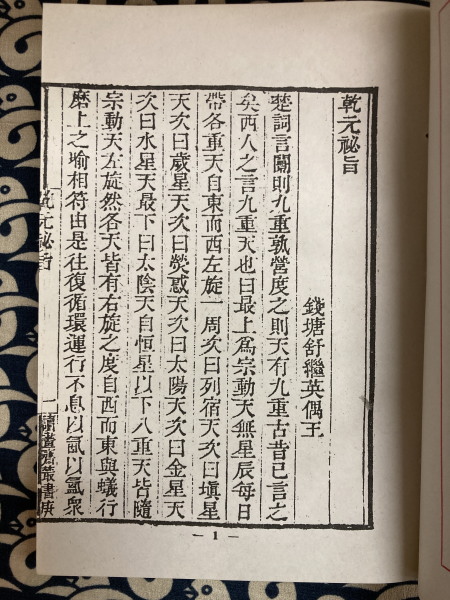 乾元祕旨
錢塘舒繼英偶王
楚詞言圜則九重孰營度之則天有九重古昔已言之
矣西人之言九重天也曰最上爲宗動天無星辰每日
帶各重天自東而西左旋一周次曰列宿天次曰塡星
天次曰歲星天次曰熒惑天次曰太陽天次曰金星天
次曰水星天最下曰太陰天自恒星以下八重天皆隨
宗動天左旋然各天皆有右旋之度自西而東與蟻行
磨上之喻相符由是往復循環運行不息以氣以氣衆
乾元祕旨
一
叢書
— 1 —